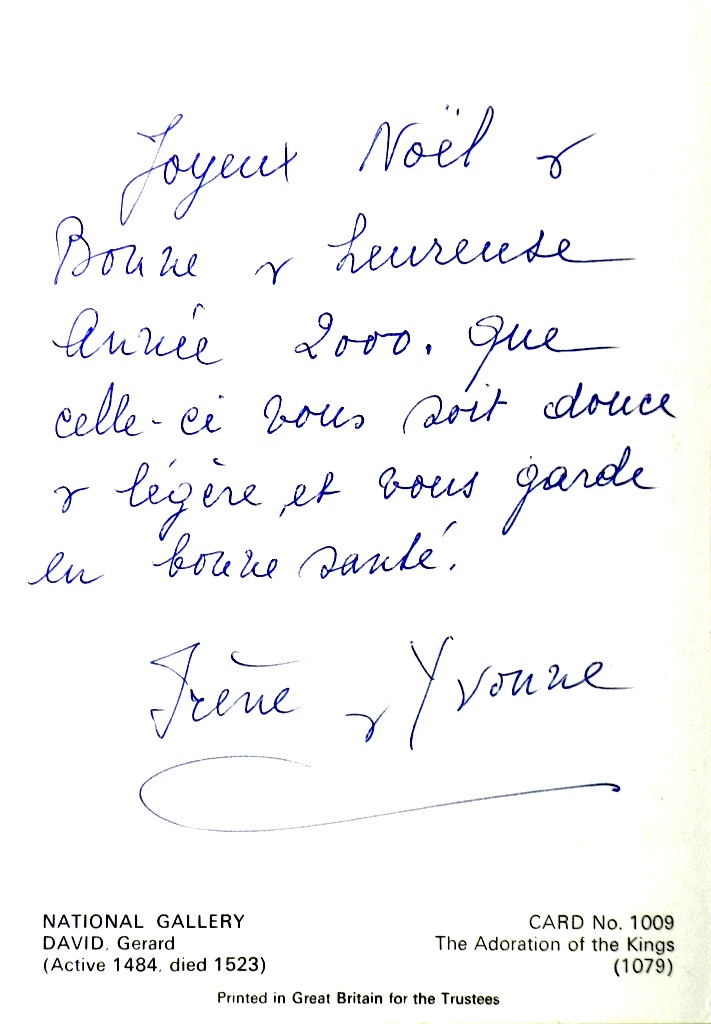 Joyeux Noël &
Bonne & heureuse
Année 2000. Que
celle-ci vous soit douce
& légère, et vous garde
en bonne santé.
Irène & Yvonne
NATIONAL GALLERY
DAVID, Gerard
(Active 1484, died 1523)
CARD No. 1009
The Adoration of the Kings
(1079)
Printed in Great Britain for the Trustees